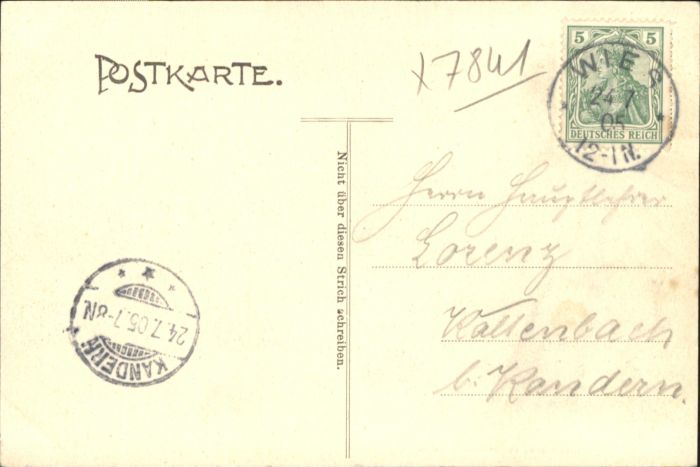 POSTKARTE.
x 7841
5 5
WIES
24 7
05
12-1N.
DEUTSCHES REICH
Nicht über diesen Strich schreiben.
Herrn Hauptlehrer
Lorenz
Kaltenbach
b. Kandern.
KANDERN
24.7.05.7-8N